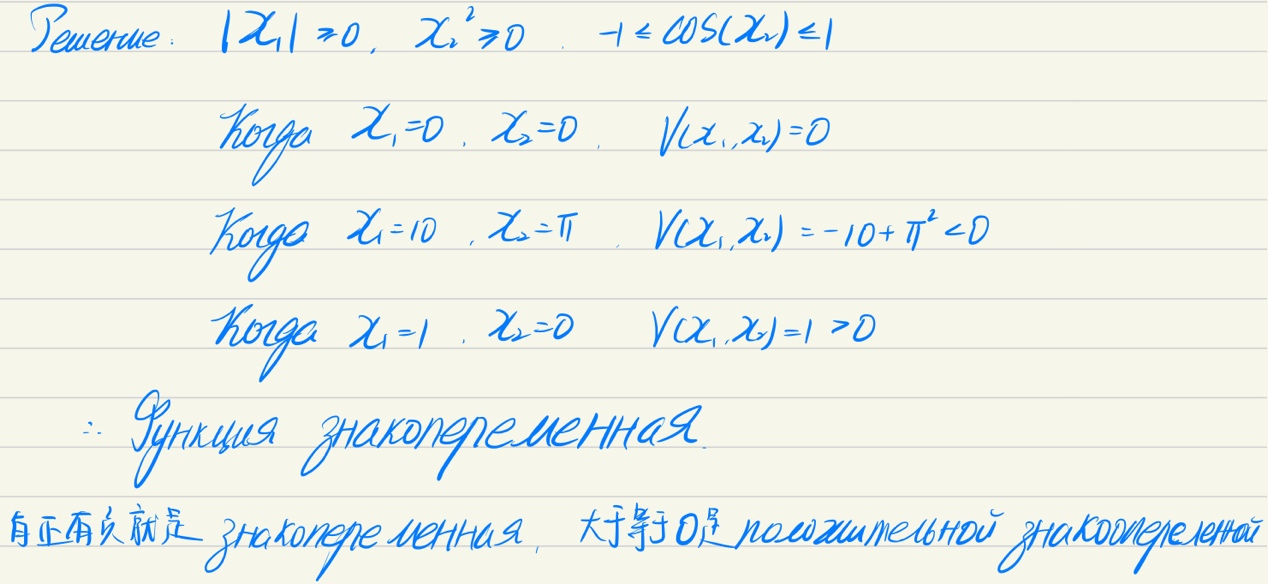 Решение: |x₁| ≥ 0, x₂² ≥ 0, -1 ≤ cos(x₂) ≤ 1
Когда x₁=0, x₂=0, V(x₁,x₂)=0
Когда x₁=10, x₂=π, V(x₁,x₂) = -10+π² <0
Когда x₁=1, x₂=0 V(x₁,x₂)=1 >0
∴ Функция знакопеременная.
有正有负就是 знакопеременная, 大于等于0是 положительной знакоопеределенной